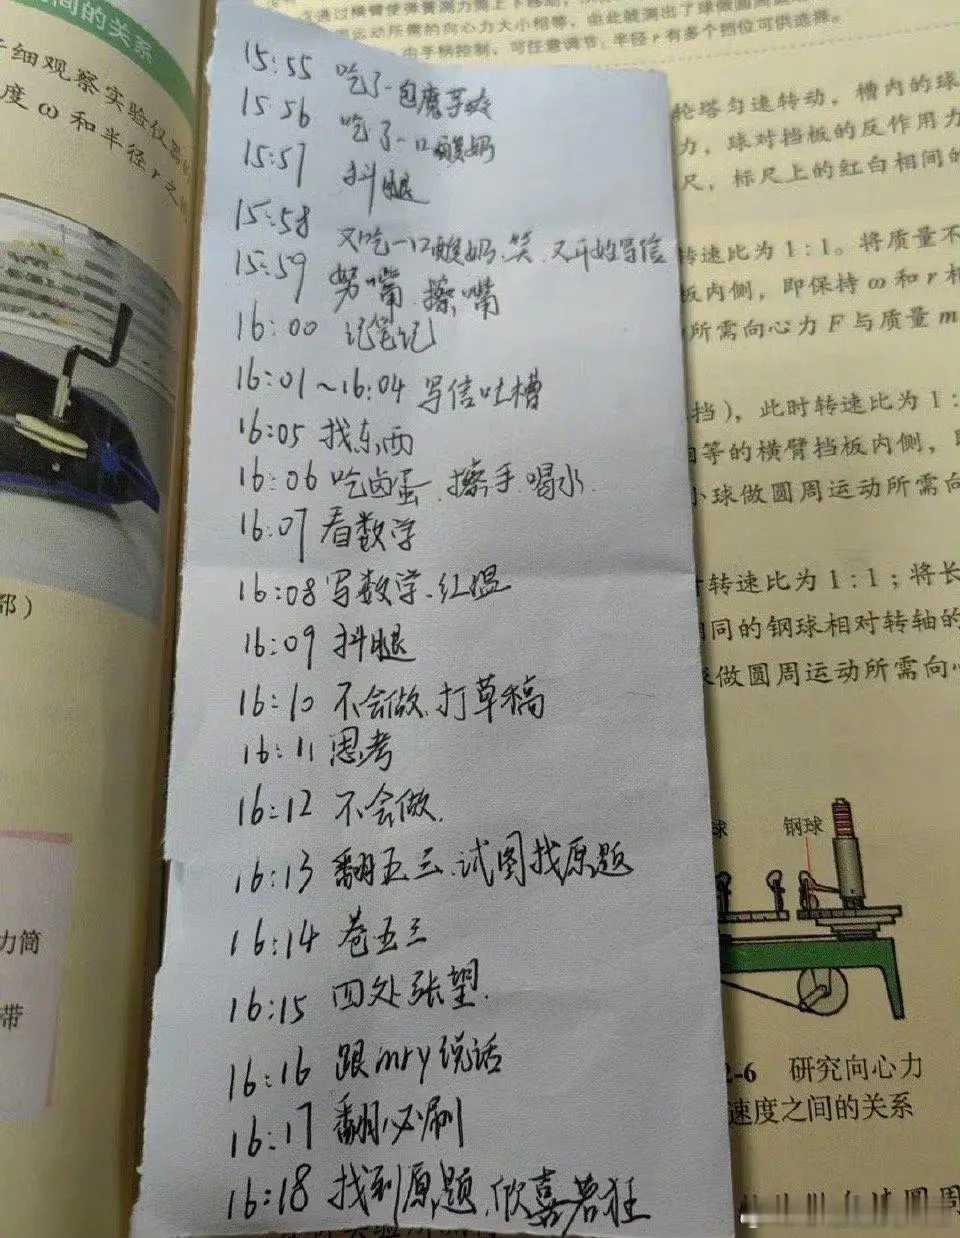 间的关系
细观察实验仪器
度 ω 和半径 r 之
部）
力简
带
15:55 吃了一包魔芋爽
15:56 吃了一口酸奶
15:57 抖腿
15:58 又吃一口酸奶、笑、又开始写信
15:59 努嘴、擦嘴
16:00 记笔记
16:01~16:04 写信吐槽
16:05 找东西
16:06 吃卤蛋、擦手、喝水.
16:07 看数学
16:08 写数学、红温
16:09 抖腿
16:10 不会做、打草稿
16:11 思考
16:12 不会做.
16:13 翻五三、试图找原题
16:14 卷五三
16:15 四处张望.
16:16 跟mry说话
16:17 翻必刷
16:18 找到原题、欣喜若狂
运动所需的向心力大小相等，由此就测出了球做圆周
由手柄控制，可任意调节；半径 r 有多个挡位可供选择。
轮塔匀速转动，槽内的球
力，球对挡板的反作用力
尺，标尺上的红白相间的
转速比为 1：1。将质量不
板内侧，即保持 ω 和 r 相
所需向心力 F 与质量 m
挡），此时转速比为 1：
相等的横臂挡板内侧，
小球做圆周运动所需向
时转速比为 1：1；将长
相同的钢球相对转轴的
球做圆周运动所需向心
球
钢球
2-6 研究向心力
速度之间的关系